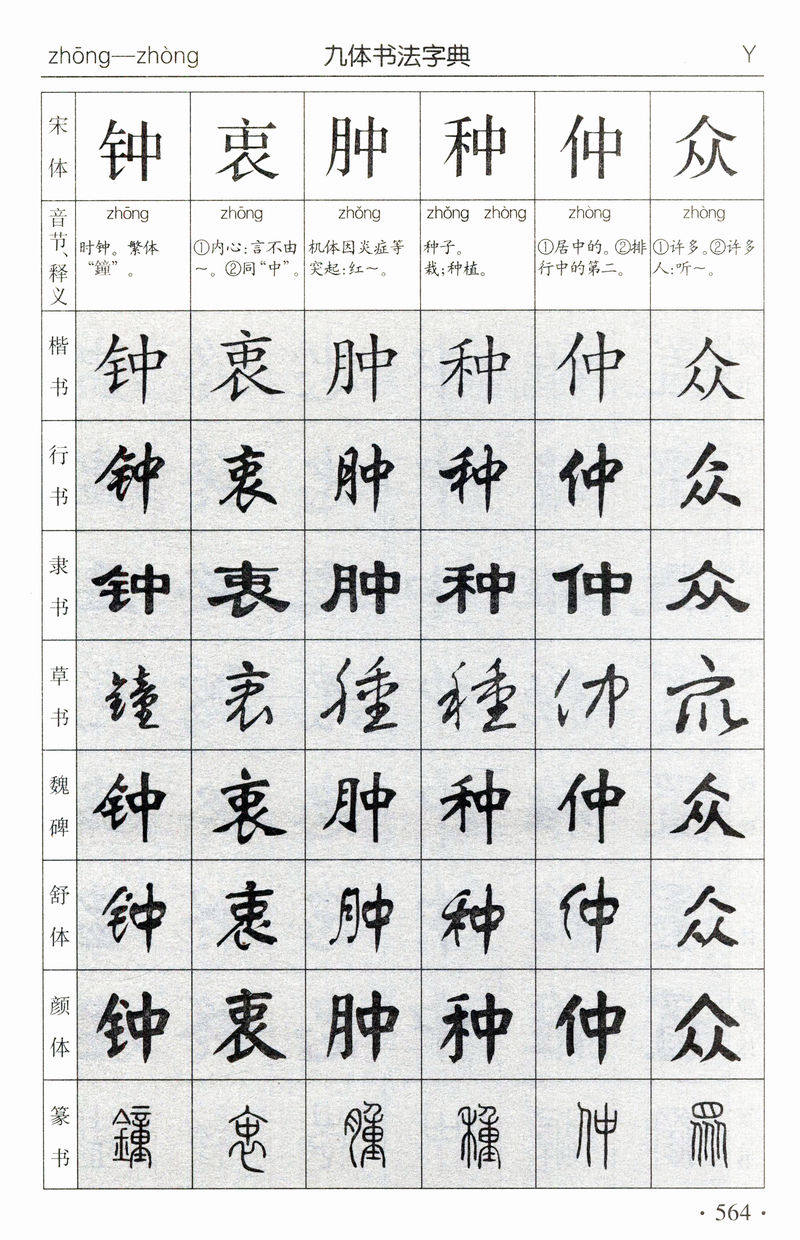 zhōng—zhòng 九体书法字典 Y
宋体 钟 衷 肿 种 仲 众
音节、释义 zhōng zhōng zhǒng zhǒng zhòng zhòng zhòng
时钟。繁体“鐘”。
①内心:言不由~。②同“中”。
机体因炎症等突起:红~。
种子。栽;种植。
①居中的。②排行中的第二。
①许多。②许多人:听~。
楷书 钟 衷 肿 种 仲 众
行书 钟 衷 肿 种 仲 众
隶书 钟 衷 肿 种 仲 众
草书 鐘 衷 腫 種 仲 眾
魏碑 钟 衷 肿 种 仲 众
舒体 钟 衷 肿 种 仲 众
颜体 钟 衷 肿 种 仲 众
篆书 鐘 衷 腫 種 仲 眾
·564·